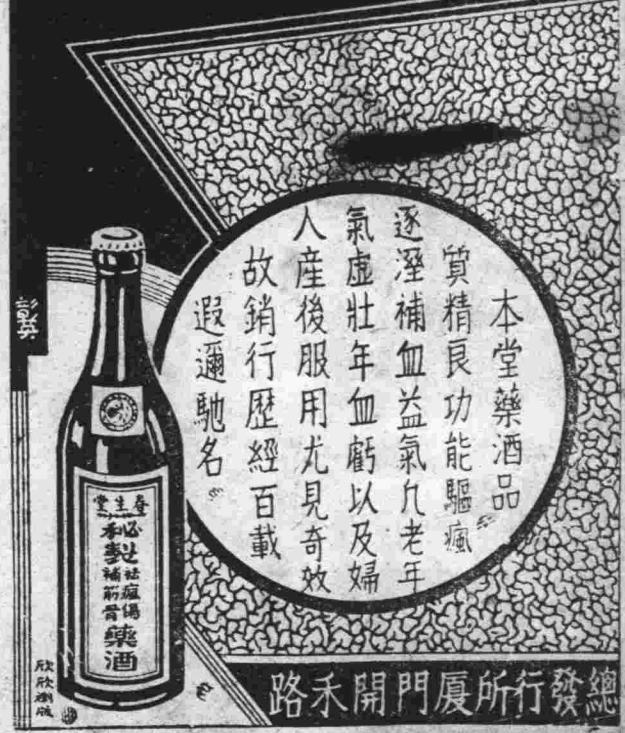 本堂藥酒品
質精良功能驅瘋
逐溼補血益氣凡老年
氣虛壯年血虧以及婦
人産後服用尤見奇效
故銷行歷經百載
遐邇馳名
春生堂
必製
祛瘋傷
補筋骨
藥酒
總發行所厦門開禾路